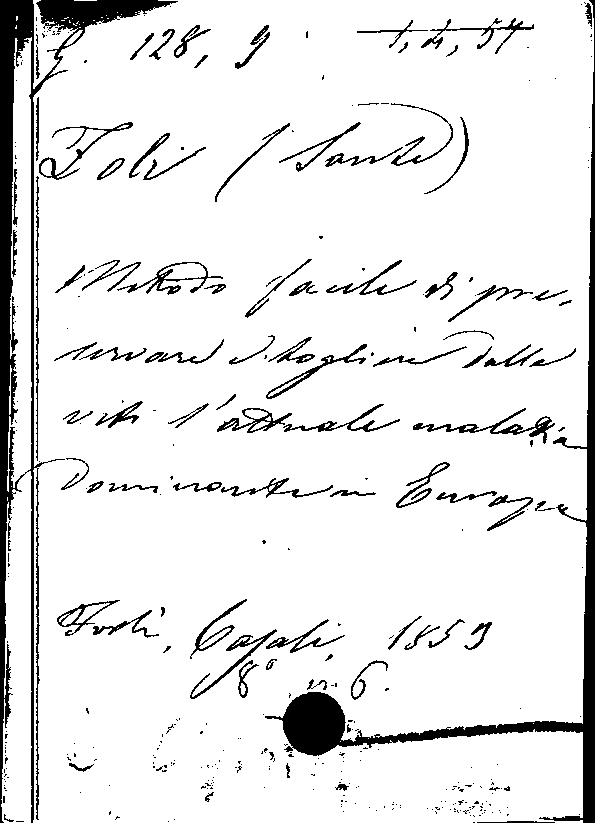 G. 128, 9 1, 2, 54
Foli (Sante)
Metodo facile di pre-
servare e togliere dalle
viti l'attuale malattia
Dominante in Europa
Forlì, Casali, 1853
8° 6.